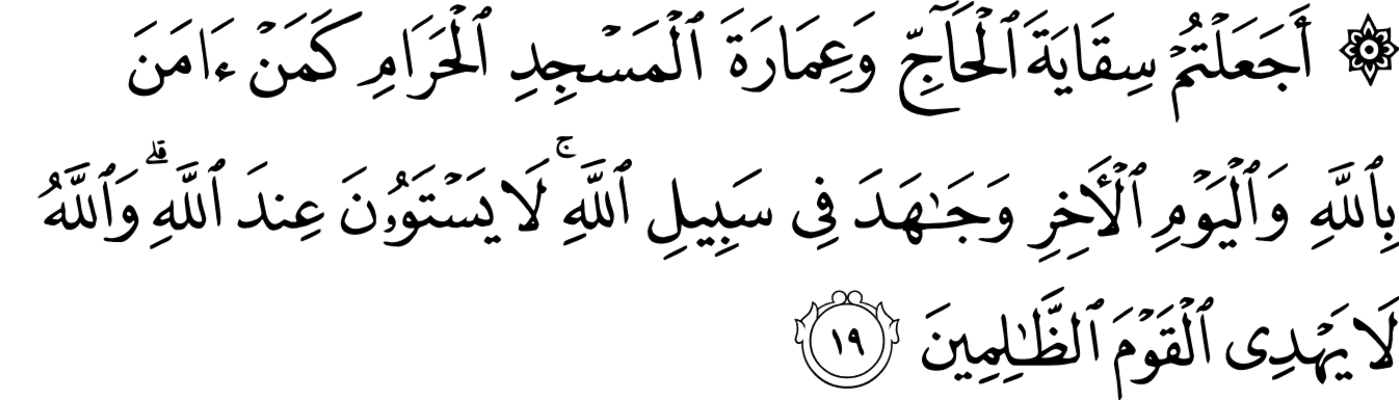 ۞ أَجَعَلْتُمْ سِقَايَةَ ٱلْحَآجِّ وَعِمَارَةَ ٱلْمَسْجِدِ ٱلْحَرَامِ كَمَنْ ءَامَنَ
بِٱللَّهِ وَٱلْيَوْمِ ٱلْأَخِرِ وَجَـٰهَدَ فِى سَبِيلِ ٱللَّهِ ۚ لَا يَسْتَوُۥنَ عِندَ ٱللَّهِ ۗ وَٱللَّهُ
لَا يَهْدِى ٱلْقَوْمَ ٱلظَّـٰلِمِينَ ١٩